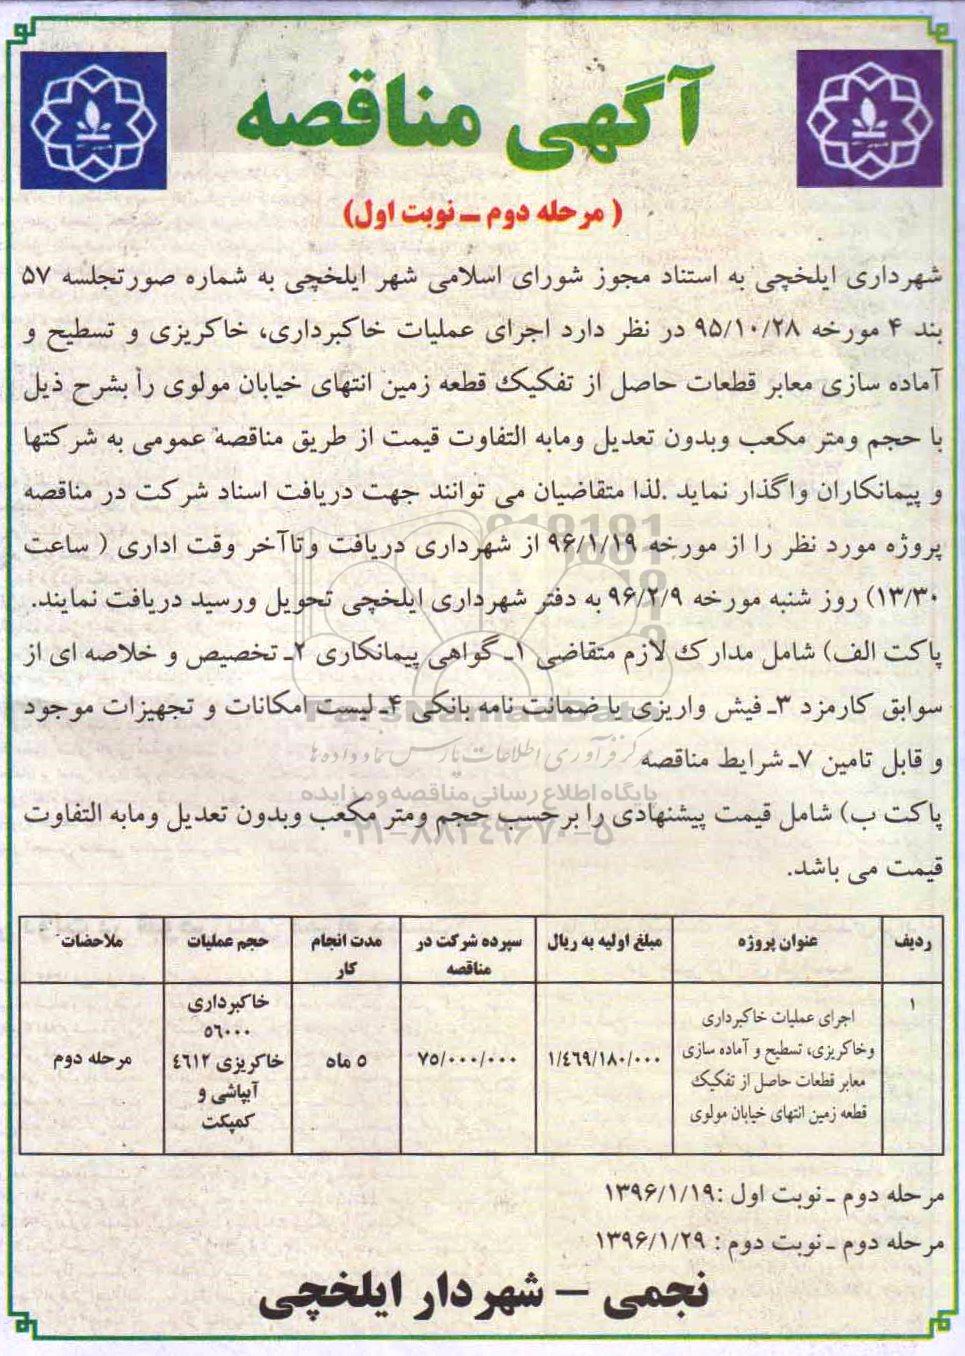 آگهی مناقصه
( مرحله دوم ـ نوبت اول)
شهرداری ایلخچی به استناد مجوز شورای اسلامی شهر ایلخچی به شماره صورتجلسه ۵۷
بند ۴ مورخه ۹۵/۱۰/۲۸ در نظر دارد اجرای عملیات خاکبرداری، خاکریزی و تسطیح و
آماده سازی معابر قطعات حاصل از تفکیک قطعه زمین انتهای خیابان مولوی را بشرح ذیل
با حجم ومتر مکعب وبدون تعدیل ومابه التفاوت قیمت از طریق مناقصه عمومی به شرکتها
و پیمانکاران واگذار نماید .لذا متقاضیان می توانند جهت دریافت اسناد شرکت در مناقصه
پروژه مورد نظر را از مورخه ۹۶/۱/۱۹ از شهرداری دریافت وتاآخر وقت اداری ( ساعت
۱۳/۳۰) روز شنبه مورخه ۹۶/۲/۹ به دفتر شهرداری ایلخچی تحویل ورسید دریافت نمایند.
پاکت الف) شامل مدارک لازم متقاضی ۱ـ گواهی پیمانکاری ۲ـ تخصیص و خلاصه ای از
سوابق کارمزد ۳ـ فیش واریزی یا ضمانت نامه بانکی ۴ـ لیست امکانات و تجهیزات موجود
و قابل تامین ۷ـ شرایط مناقصه
پاکت ب) شامل قیمت پیشنهادی را برحسب حجم ومتر مکعب وبدون تعدیل ومابه التفاوت
قیمت می باشد.
ParsNamadData
مرکز فرآوری اطلاعات پارس نماد داده ها
پایگاه اطلاع رسانی مناقصه و مزایده
۰۲۱-۸۸۳۴۹۶۷۰-۵
ردیف عنوان پروژه مبلغ اولیه به ریال سپرده شرکت در مناقصه مدت انجام کار حجم عملیات ملاحضات
۱
اجرای عملیات خاکبرداری
وخاکریزی، تسطیح و آماده سازی
معابر قطعات حاصل از تفکیک
قطعه زمین انتهای خیابان مولوی
۱/٤٦۹/۱۸۰/۰۰۰
۷۵/۰۰۰/۰۰۰
۵ ماه
خاکبرداری
۵٦۰۰۰
خاکریزی ٤٦۱۲
آبپاشی و
کمپکت
مرحله دوم
مرحله دوم ـ نوبت اول :۱۳۹۶/۱/۱۹
مرحله دوم ـ نوبت دوم : ۱۳۹۶/۱/۲۹
نجمی – شهردار ایلخچی